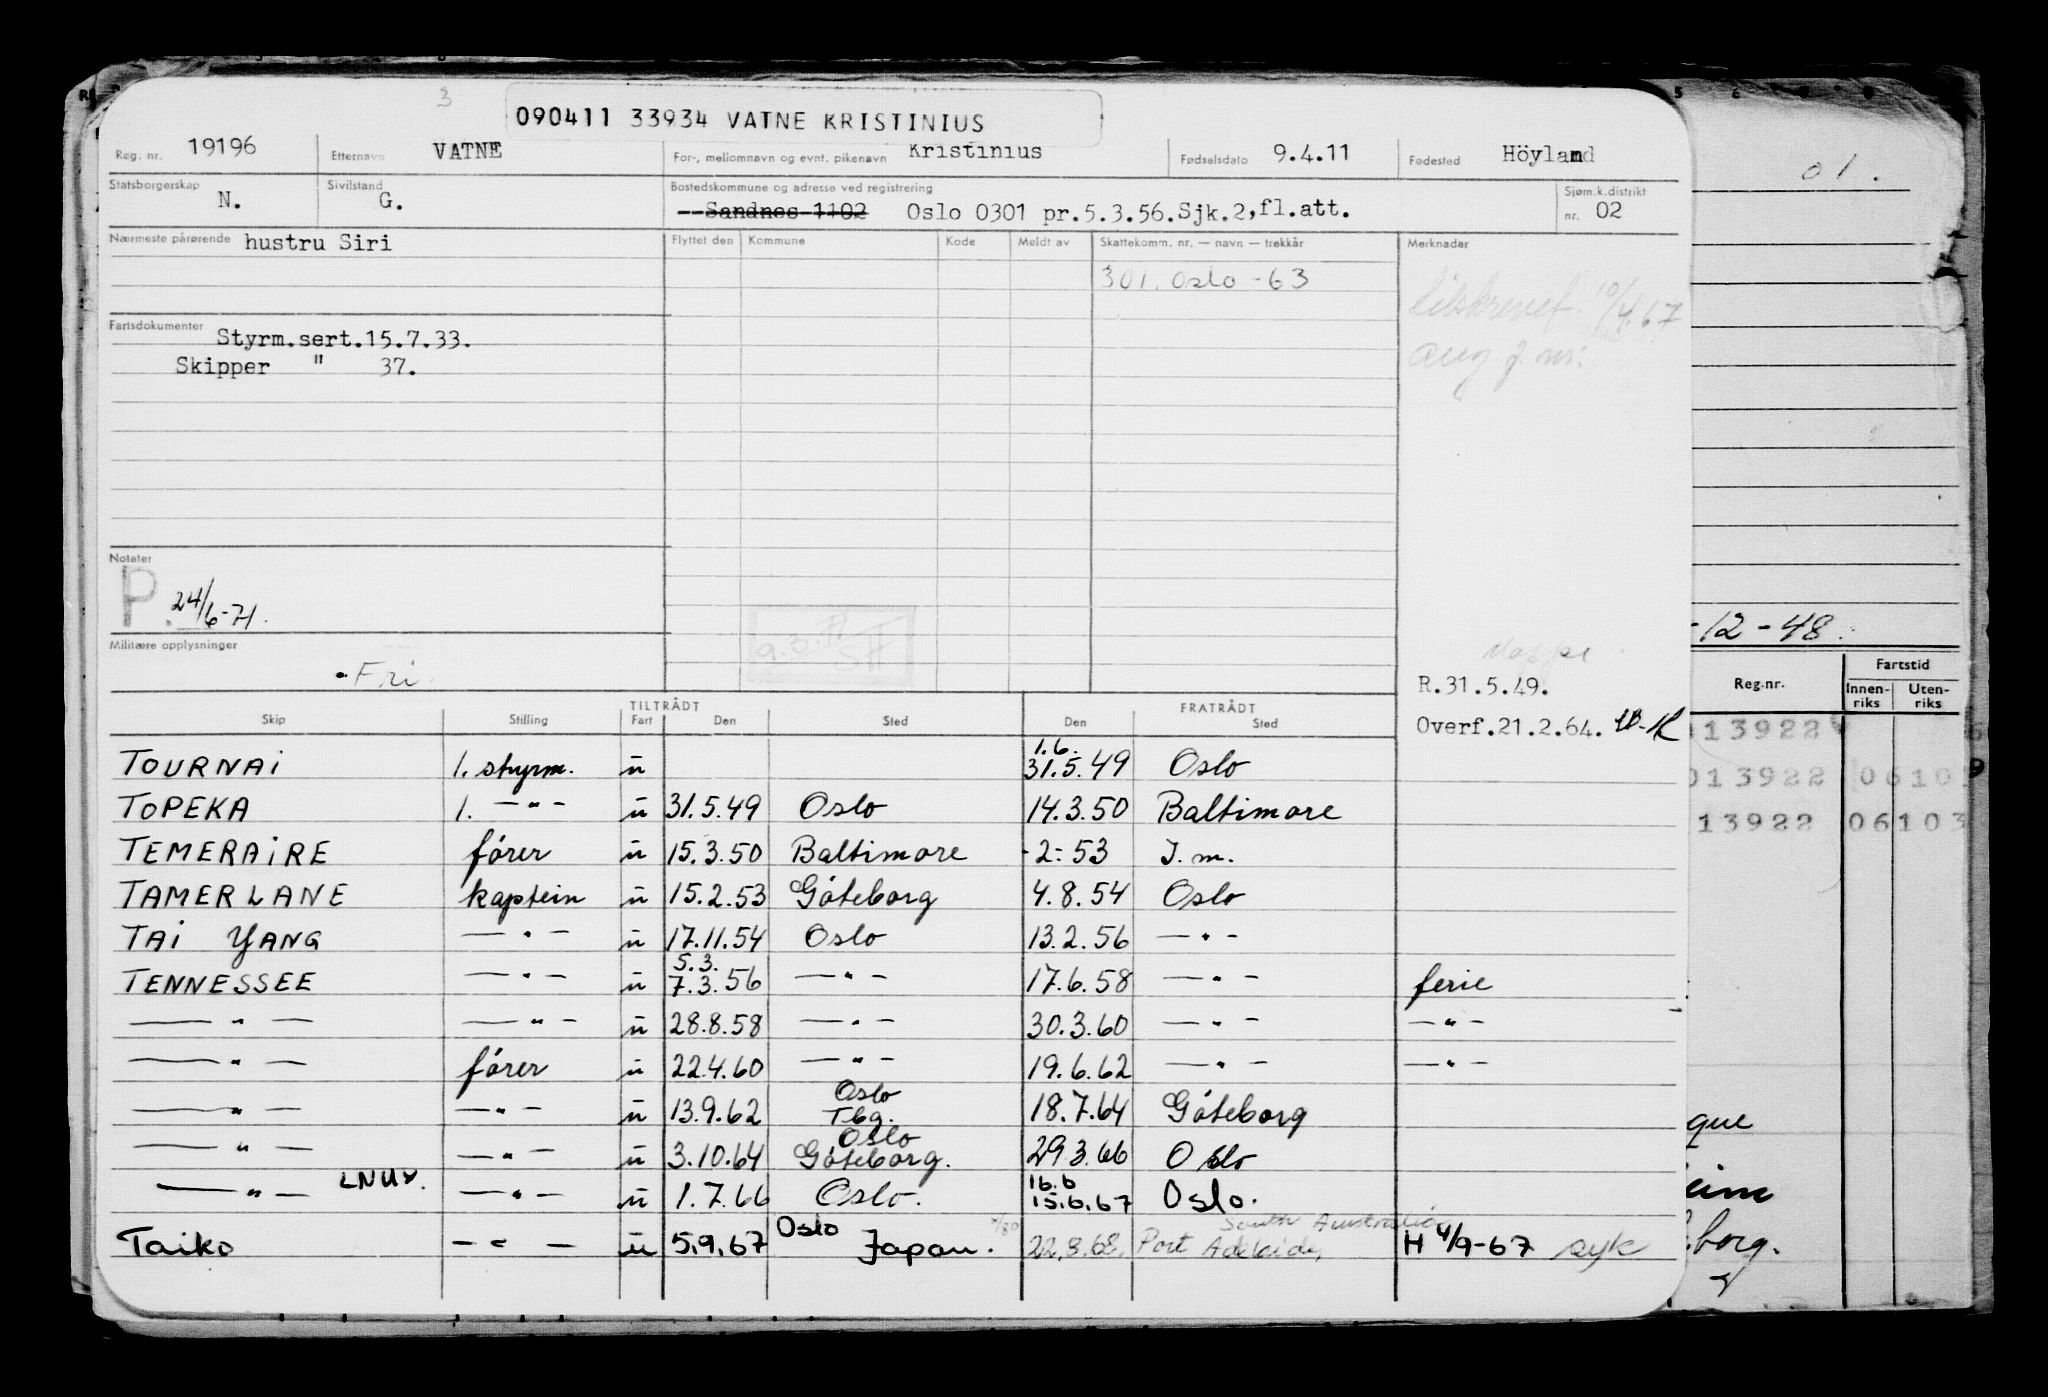 3
090411 33934 VATNE KRISTINIUS
Reg. nr. 19196 Etternavn VATNE For-, mellomnavn og evnt. pikenavn Kristinius Fødselsdato 9.4.11 Fødested Höyland
Statsborgerskap N. Sivilstand G. Bostedskommune og adresse ved registrering Sjøm.k.distrikt
--Sandnes 1102 Oslo 0301 pr.5.3.56.Sjk.2,fl.att. nr. 02
Nærmeste pårørende hustru Siri Flyttet den Kommune Kode Meldt av Skattekomm. nr. — navn — trekkår Merknader
301. Oslo -63
10/4.67
Fartsdokumenter Styrm.sert.15.7.33.
Skipper " 37.
Notater
P. 24/6-71.
Militære opplysninger
Fri
R.31.5.49.
Overf.21.2.64.
TILTRÅDT FRATRÅDT
Skip Stilling Fart Den Sted Den Sted
TOURNAI 1. styrm. u 1.6. 31.5.49 Oslo
TOPEKA 1. —"— u 31.5.49 Oslo 14.3.50 Baltimore
TEMERAIRE fører u 15.3.50 Baltimore -2-53 J.m.
TAMERLANE kaptein u 15.2.53 Gøteborg 4.8.54 Oslo
TAI YANG —"— u 17.11.54 Oslo 13.2.56 —"—
TENNESSEE —"— u 5.3. 7.3.56 —"— 17.6.58 —"— ferie
—"— —"— u 28.8.58 —"— 30.3.60 —"— —"—
—"— fører u 22.4.60 —"— 19.6.62 —"— —"—
—"— —"— u 13.9.62 Oslo Tbg. 18.7.64 Gøteborg
—"— —"— u 3.10.64 Oslo Gøteborg. 29.3.66 Oslo
—"— LNUV. —"— u 1.7.66 Oslo. 16.6 15.6.67 Oslo.
Taiko —"— u 5.9.67 Oslo Japan. 22.8.68. Port Adelaide, South Australia H 4/9-67 syk
01.
-12-48.
Reg.nr. Fartstid
Innen-riks Uten-riks
13922
013922 0610
13922 06103
que
eim
borg.